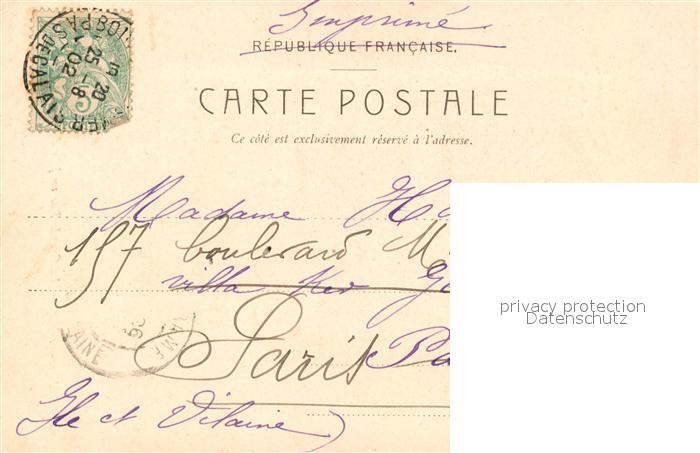 Imprimé
RÉPUBLIQUE FRANÇAISE.
CARTE POSTALE
Ce côté est exclusivement réservé à l'adresse.
Madame
157 boulevard
villa Ker
Paris
Ile et Vilaine
PAS DE CALAIS
25 - 8
02
5
privacy protection
Datenschutz